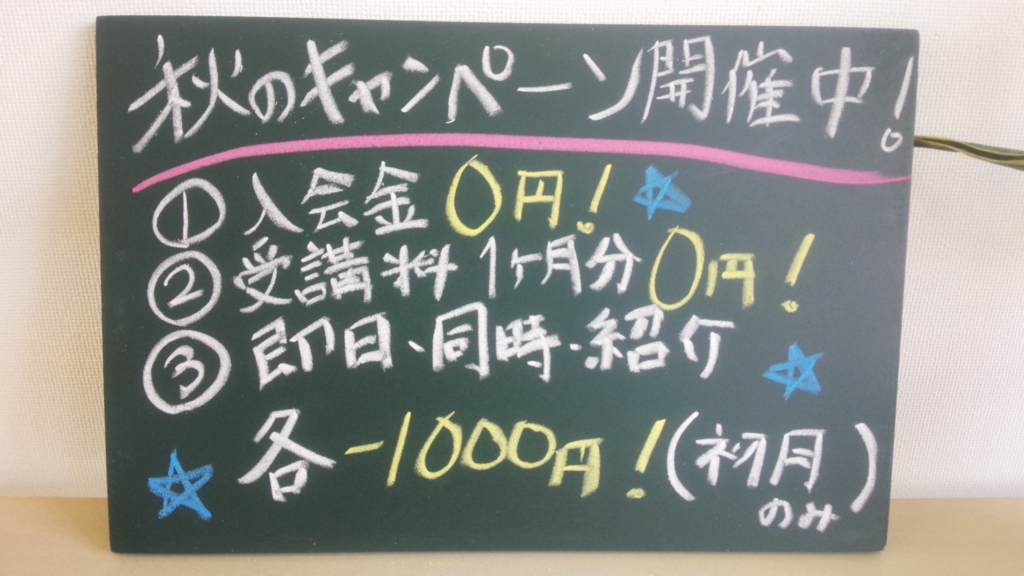 秋のキャンペーン開催中!
① 入会金 0円!
② 受講料 1ヶ月分 0円!
③ 即日、同時・紹介
各 -1000円!(初月のみ)